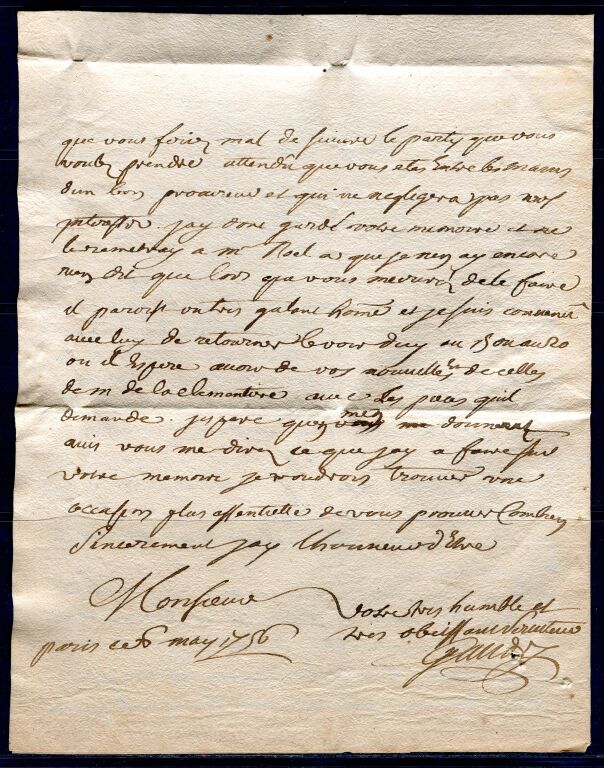 que vous feriez mal de suivre le party que vous
voulez prendre attendu que vous etes Entre les mains
d'un bon procureur et qui ne negligera pas vos
interests. jay donc gardé votre memoire et ne
le remetray a mr Noel a que je nen ay encore
rien dit que lors que vous m'ecrirez de le faire
il paroist un tres galant home et je suis convenu
avec luy de retourner le voir du au 15 ou au 20
ou il Espere avoir de vos nouvelles et de celles
de m de la clementiere avec les pieces quil
demande. jespere que men donnerez
avis vous me direz ce que jay a faire sur
votre memoire je voudrois trouver une
occasion plus essentielle de vous prouver Combien
Sincerement jay l'honneur d'Etre
Monsieur
votre tres humble et
tres obeissant serviteur
paris ce 6 may 1756